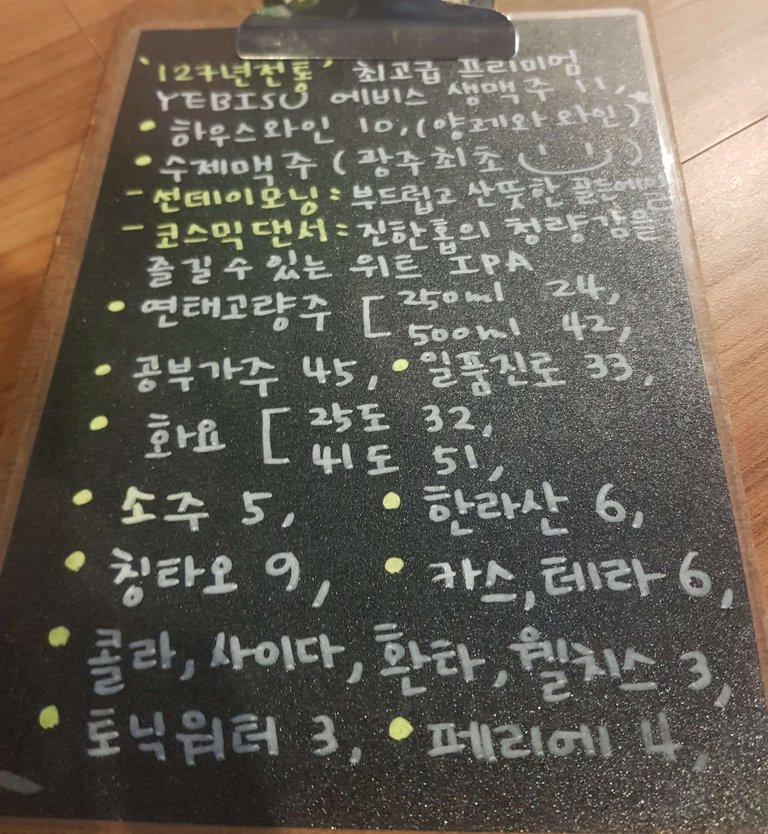 '127년전통' 최고급 프리미엄
YEBISU 에비스 생맥주 11,
• 하우스와인 10, (양레와 와인)
• 수제맥주 (광주최초 )
- 선데이모닝: 부드럽고 산뜻한 골든에일
- 코스믹댄서: 진한홉의 청량감을
즐길 수 있는 위트 IPA
• 연태고량주 [ 250ml 24,
500ml 42,
• 공부가주 45, • 일품진로 33,
• 화요 [ 25도 32,
41도 51,
• 소주 5, • 한라산 6,
• 칭타오 9, • 카스, 테라 6,
• 콜라, 사이다, 환타, 웰치스 3,
• 토닉워터 3, • 페리에 4,